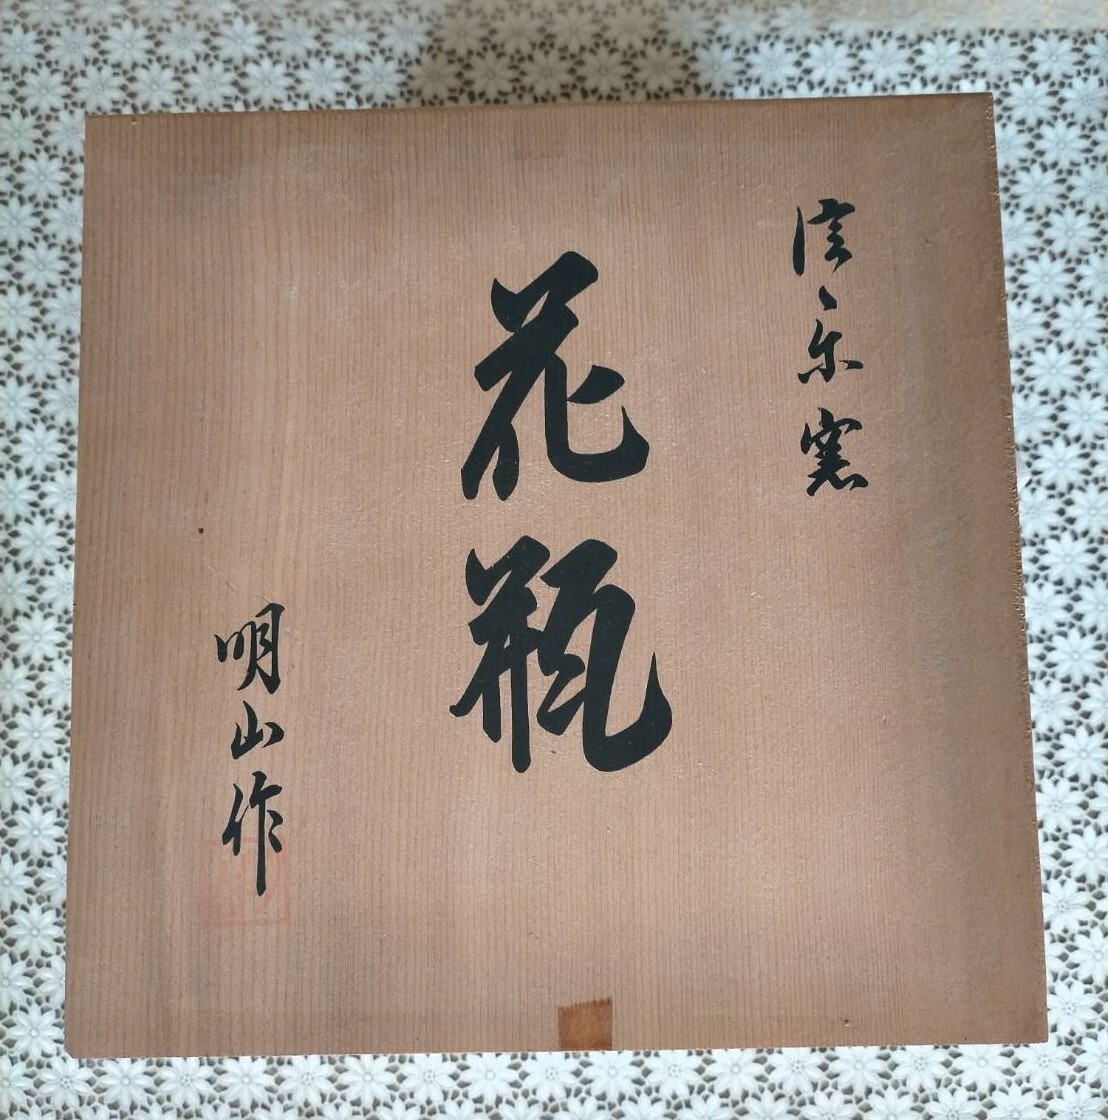 信楽窯
花瓶
明山作